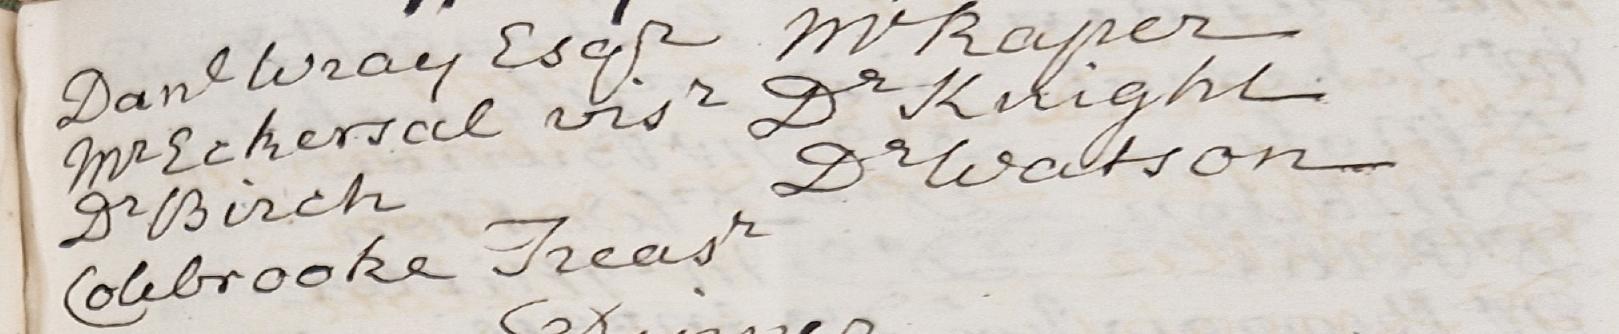 Danl Wray Esqr Mr Raper
Mr Eckersal visr Dr Knight
Dr Birch Dr Watson
Colebrooke Treasr
Dinner